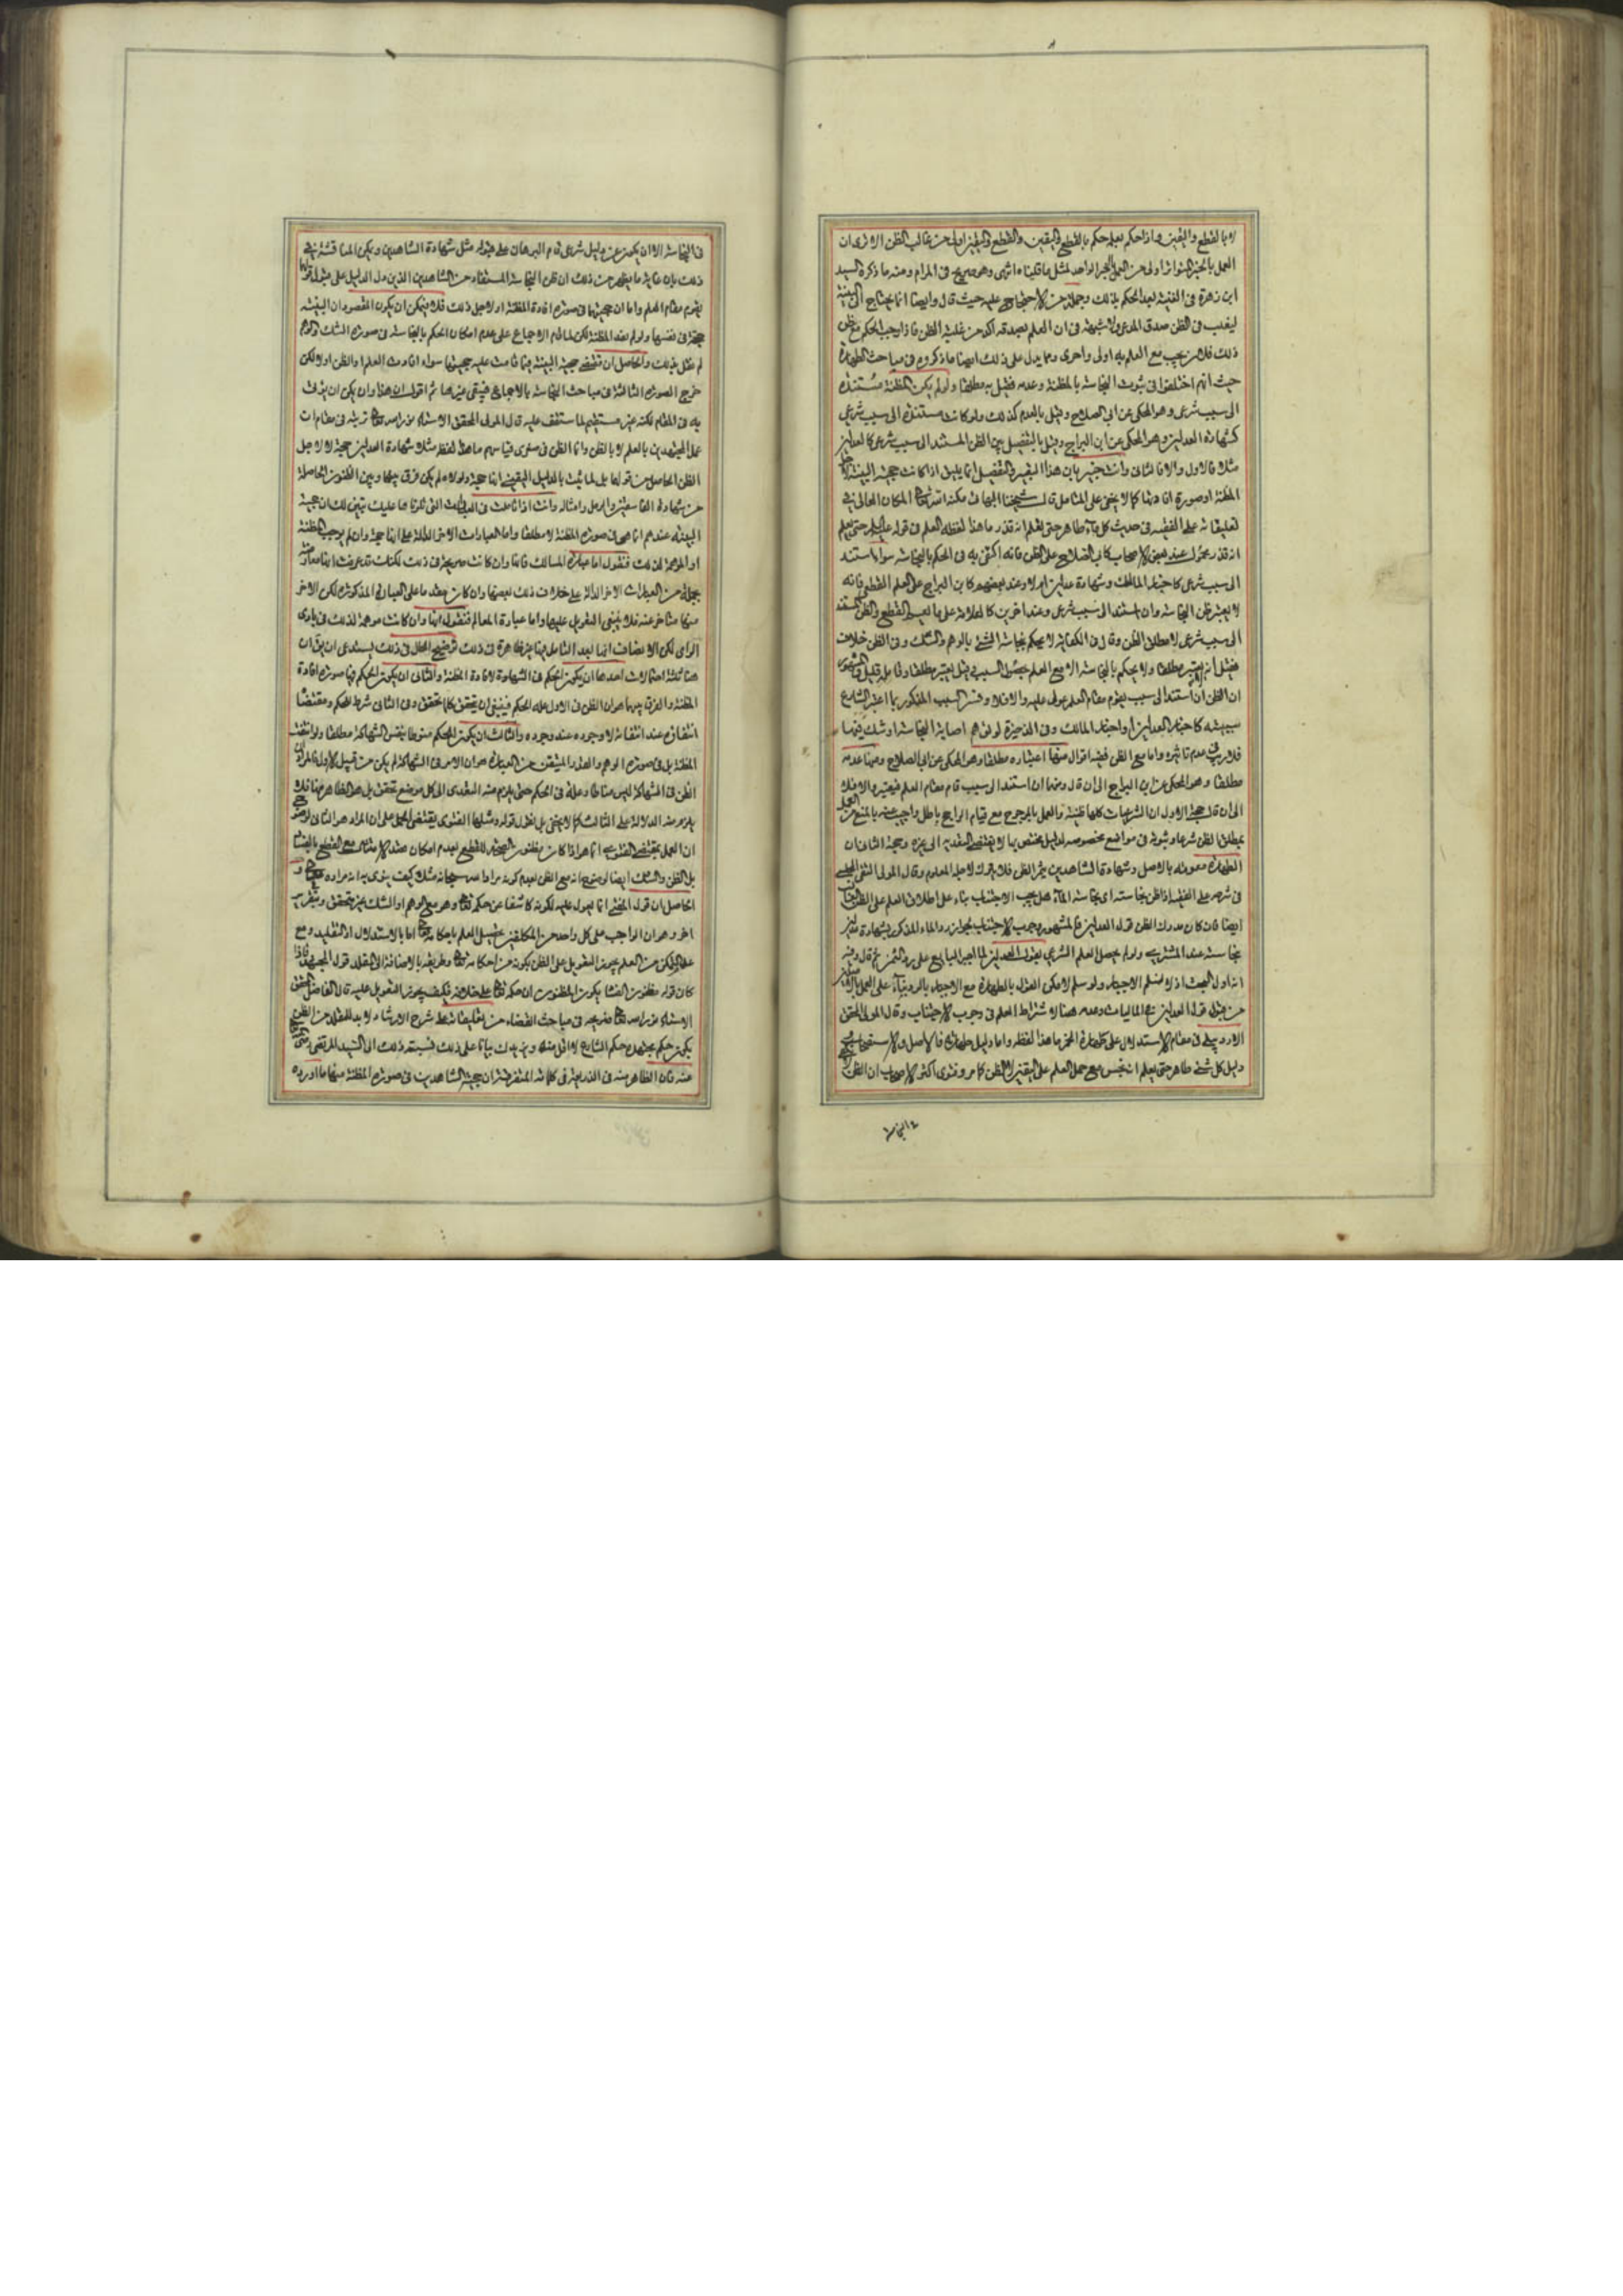 لا بالقطع واليقين واذا حكم بعلمه حكم بالقطع واليقين والقطع واليقين اولى من غالب الظن الا ترى ان
العمل بالخبر المتواتر اولى من العمل بالخبر الواحد لمثل ما قلناه انتهى وهو صريح في المرام ومنه ما ذكره السيد
ابن زهرة في الغنية بعد الحكم بذلك وجملة من الاحتجاج عليه حيث قال وايضا انما يحتاج الى البينة
ليغلب في الظن صدق المدعي ولا شبهة في ان العلم بصدقه آكد من غلبة الظن فاذا وجب الحكم مع ظن
ذلك فلان يجب مع العلم به اولى واحرى ومما يدل على ذلك ايضا ما ذكروه في مباحث الطهارة
حيث انهم اختلفوا في ثبوت النجاسة بالمظنة وعدمه فقيل به مطلقا ولو لم يكن المظنة مستندة
الى سبب شرعي وهو المحكي عن ابي الصلاح وقيل بالعدم كذلك ولو كانت مستندة الى سبب شرعي
كشهادة العدلين وهو المحكي عن ابن البراج وقيل بالتفصيل بين الظن المستند الى سبب شرعي كالعدلين
مثلا فالاول والا فالثاني وانت خبير بان هذا التعبير والتفصيل انما يليق اذا كانت حجية البينة لاجل
المظنة او صورة افادتها كما لا يخفى على المتامل قال شيخنا البهائي مكنه الله تعالى المكان العالي في
تعليقاته على الفقيه في حديث كل ماء طاهر حتى تعلم انه قذر ما هذا لفظه العلم في قوله عليه السلام حتى يعلم
انه قذر محمول عند بعض الاصحاب كابي الصلاح على الظن فانه اكتفى به في الحكم بالنجاسة سواء استند
الى سبب شرعي كاخبار المالك وشهادة عدلين ام لا وعند بعضهم كابن البراج على العلم القطعي فانه
لا يعتبر ظن النجاسة وان استند الى سبب شرعي وعند اخرين كالعلامة على ما يعم القطع والظن المستند
الى سبب شرعي لا مطلق الظن وقال في الكفاية لا يحكم بنجاسة الشئ بالوهم والشك وفي الظن خلاف
فقيل انه يعتبر مطلقا ولا يحكم بالنجاسة الا مع العلم بحصول السبب وقيل يعتبر مطلقا وقال
ان الظن ان استند الى سبب يقوم مقام العلم عول عليه والا فلا وفسر السبب المذكور بما اعتبر الشارع
سببيته كاخبار العدلين او اخبار المالك وفي الذخيرة لو توهم اصابة النجاسة او شك فيها
فلا ريب في عدم تاثيره واما مع الظن ففيه اقوال منها اعتباره مطلقا وهو المحكي عن ابي الصلاح ومنها عدمه
مطلقا وهو المحكي عن ابن البراج الى ان قال ومنها ان استند الى سبب قام مقام العلم فيعتبر والا فلا
الى ان قال حجة الاول ان الشرعيات كلها ظنية والعمل بالمرجوح مع قيام الراجح باطل واجيب عنه بالمنع من العمل
بمطلق الظن شرعا وثبوته في مواضع مخصوصه لدليل يختص بها لا يقتضي التعدية الى غيره وحجة الثاني ان
الطهارة معلومة بالاصل وشهادة الشاهدين يثمر الظن فلا يترك لاجله المعلوم وقال المولى التقي المجلسي
في شرحه على الفقيه اذا ظن نجاسته اي نجاسة الماء هل يجب الاجتناب بناء على اطلاق العلم على الظن
ايضا فان كان مدرك الظن قول العدلين فالمشهور وجوب الاجتناب بجواز رد الماء المذكور بشهادة عدلين
بنجاسته عند المشتري ولو لم يحصل العلم الشرعي بقول العدلين لما اجبر البايع على رد الثمن ثم قال وفيه
انه اول البحث اذ لا نسلم الاجبار ولو سلم لامكن القول بالطهارة مع الاجبار بالرد بناء على العمل
من قبول قول العدلين في الماليات وعدمه هنا لاشتراط العلم في وجوب الاجتناب وقال المولى المحقق
الاردبيلي في مقام الاستدلال على طهارة الخمر ما هذا لفظه واما دليل طهارتها فالاصل والاستصحاب
دليل كل شئ طاهر حتى يعلم انه نجس مع حمل العلم على اليقين لا الظن كما مر وفتوى اكثر الاصحاب ان الظن
في النجاسة
في النجاسة الا ان يكون عن دليل شرعي قام البرهان على قبوله مثل شهادة الشاهدين ويمكن المناقشة في
ذلك بان غاية ما يظهر من ذلك ان ظن النجاسة المستفاد من الشاهدين الذين دل الدليل على قبول قولهما
يقوم مقام العلم واما ان حجيتها في صورة افادة المظنة او لاجل ذلك فلا فيمكن ان يكون المقصود ان البينة
حجة في نفسها ولو لم يفد المظنة لكن لما قام الاجماع على عدم امكان الحكم بالنجاسة في صورة الشك والوهم
لم نقل بذلك والحاصل ان مقتضى حجية البينة فيما قامت عليه حجيتها سواء افادت العلم او الظن او لا لكن
خرج الصورة الثالثة في مباحث النجاسة بالاجماع فيبقى غيرها ثم اقول ان هذا وان يمكن ان يوفى
به في المقام لكنه غير مستقيم لما ستقف عليه قال المولى المحقق الاستاد نور الله تعالى تربته في مقامات
عمل المجتهدين بالعلم لا بالظن وانما الظن في صغرى قياسهم ما هذا لفظه مثلا شهادة العدلين حجة لا لاجل
الظن الحاصل من قولهما بل لما ثبت بالدليل اليقيني انها حجة ولولاه لم يكن فرق بينها وبين الظنون الحاصلة
من شهادة الفاسقين والرمل وامثاله وانت اذا تاملت في العبارات التي تلونا ها عليك تبين لك ان حجية
البينة عندهم انما هي في صورة المظنة لا مطلقا واما العبارات الاخر الدالة على انها حجة وان لم يوجب المظنة
او الموهمة لذلك فنقول اما عبارة المسالك فانها وان كانت صريحة في ذلك لكنك قد عرفت انها معارضة
بجملة من العبارات الاخر الدالة على خلاف ذلك بعضها وان كان مقدما على العبارة المذكورة لكن الاخر
منها متاخر عنه فلا ينبغي التعويل عليها واما عبارة المعالم فنقول انها وان كانت موهمة لذلك في بادي
الراي لكن الانصاف انها بعد التامل فيها غير ظاهرة في ذلك توضيح الحال في ذلك يستدعي ان يقال ان
هنا ثلثة احتمالات احدها ان يكون الحكم في الشهادة لافادة المظنة والثاني ان يكون الحكم فيها صورة افادة
المظنة والفرق بينهما هو ان الظن في الاول علة الحكم فينبغي ان يتحقق كلما تحقق وفي الثاني شرط للحكم ومقتضاه
انتفاؤه عند انتفائه لا وجوده عند وجوده والثالث ان يكون الحكم منوطا بنفس الشهادة مطلقا ولو انتفت
المظنة بل في صورة الوهم والقدر المتيقن من العبارة هو ان الامر في الشهادة لم يكن من قبيل الاول فالمراد
الظن في الشهادة ليس مناطا وعلة في الحكم حتى يلزم منه التعدي الى كل موضع تحقق بل هو الظاهر منها فلا
يلزم منه الدلالة على الثالث كما لا يخفى بل نقول قوله ومثلها الفتوى يقتضي الحمل على ان المراد هو الثاني لوضوح
ان العمل بمقتضى الفتوى انما هو اذا كان مظنون الصحة للقطع بعدم امكان صدق الامتثال مع القطع بالفساد
بل الظن والشك ايضا لوضوح انه مع الظن بعدم كونه مرادا لله سبحانه مثلا كيف ينوي به انه مراده تعالى و
الحاصل ان قول المفتي انما يعول عليه لكونه كاشفا عن حكمه تعالى وهو مع الوهم او الشك غير متحقق وبتقرير
اخر وهو ان الواجب على كل واحد من المكلفين تحصيل العلم باحكامه تعالى اما بالاستدلال او التقليد ومع
عدم التمكن من العلم يجوز التعويل على الظن بكونه من احكامه تعالى وطريقه بالاضافة الى المقلد قول المجتهد فاذا
كان قوله مظنون الفساد يكون المظنون ان حكمه تعالى على خلافه فكيف يجوز التعويل عليه قال الفاضل المحقق
الاستاد نور الله تعالى ضريحه في مباحث القضاء من تعليقاته على شرح الارشاد لا بد للمقلد من الظن
بكون حكم مجتهده حكم الشارع لا اقل منه ويزيدك بيانا على ذلك فنسبته ذلك الى السيد المرتضى رضي
عنه فان الظاهر منه في الذريعة في كلماته المتفرقة ان حجية الشاهدين في صورة المظنة منها ما اورده